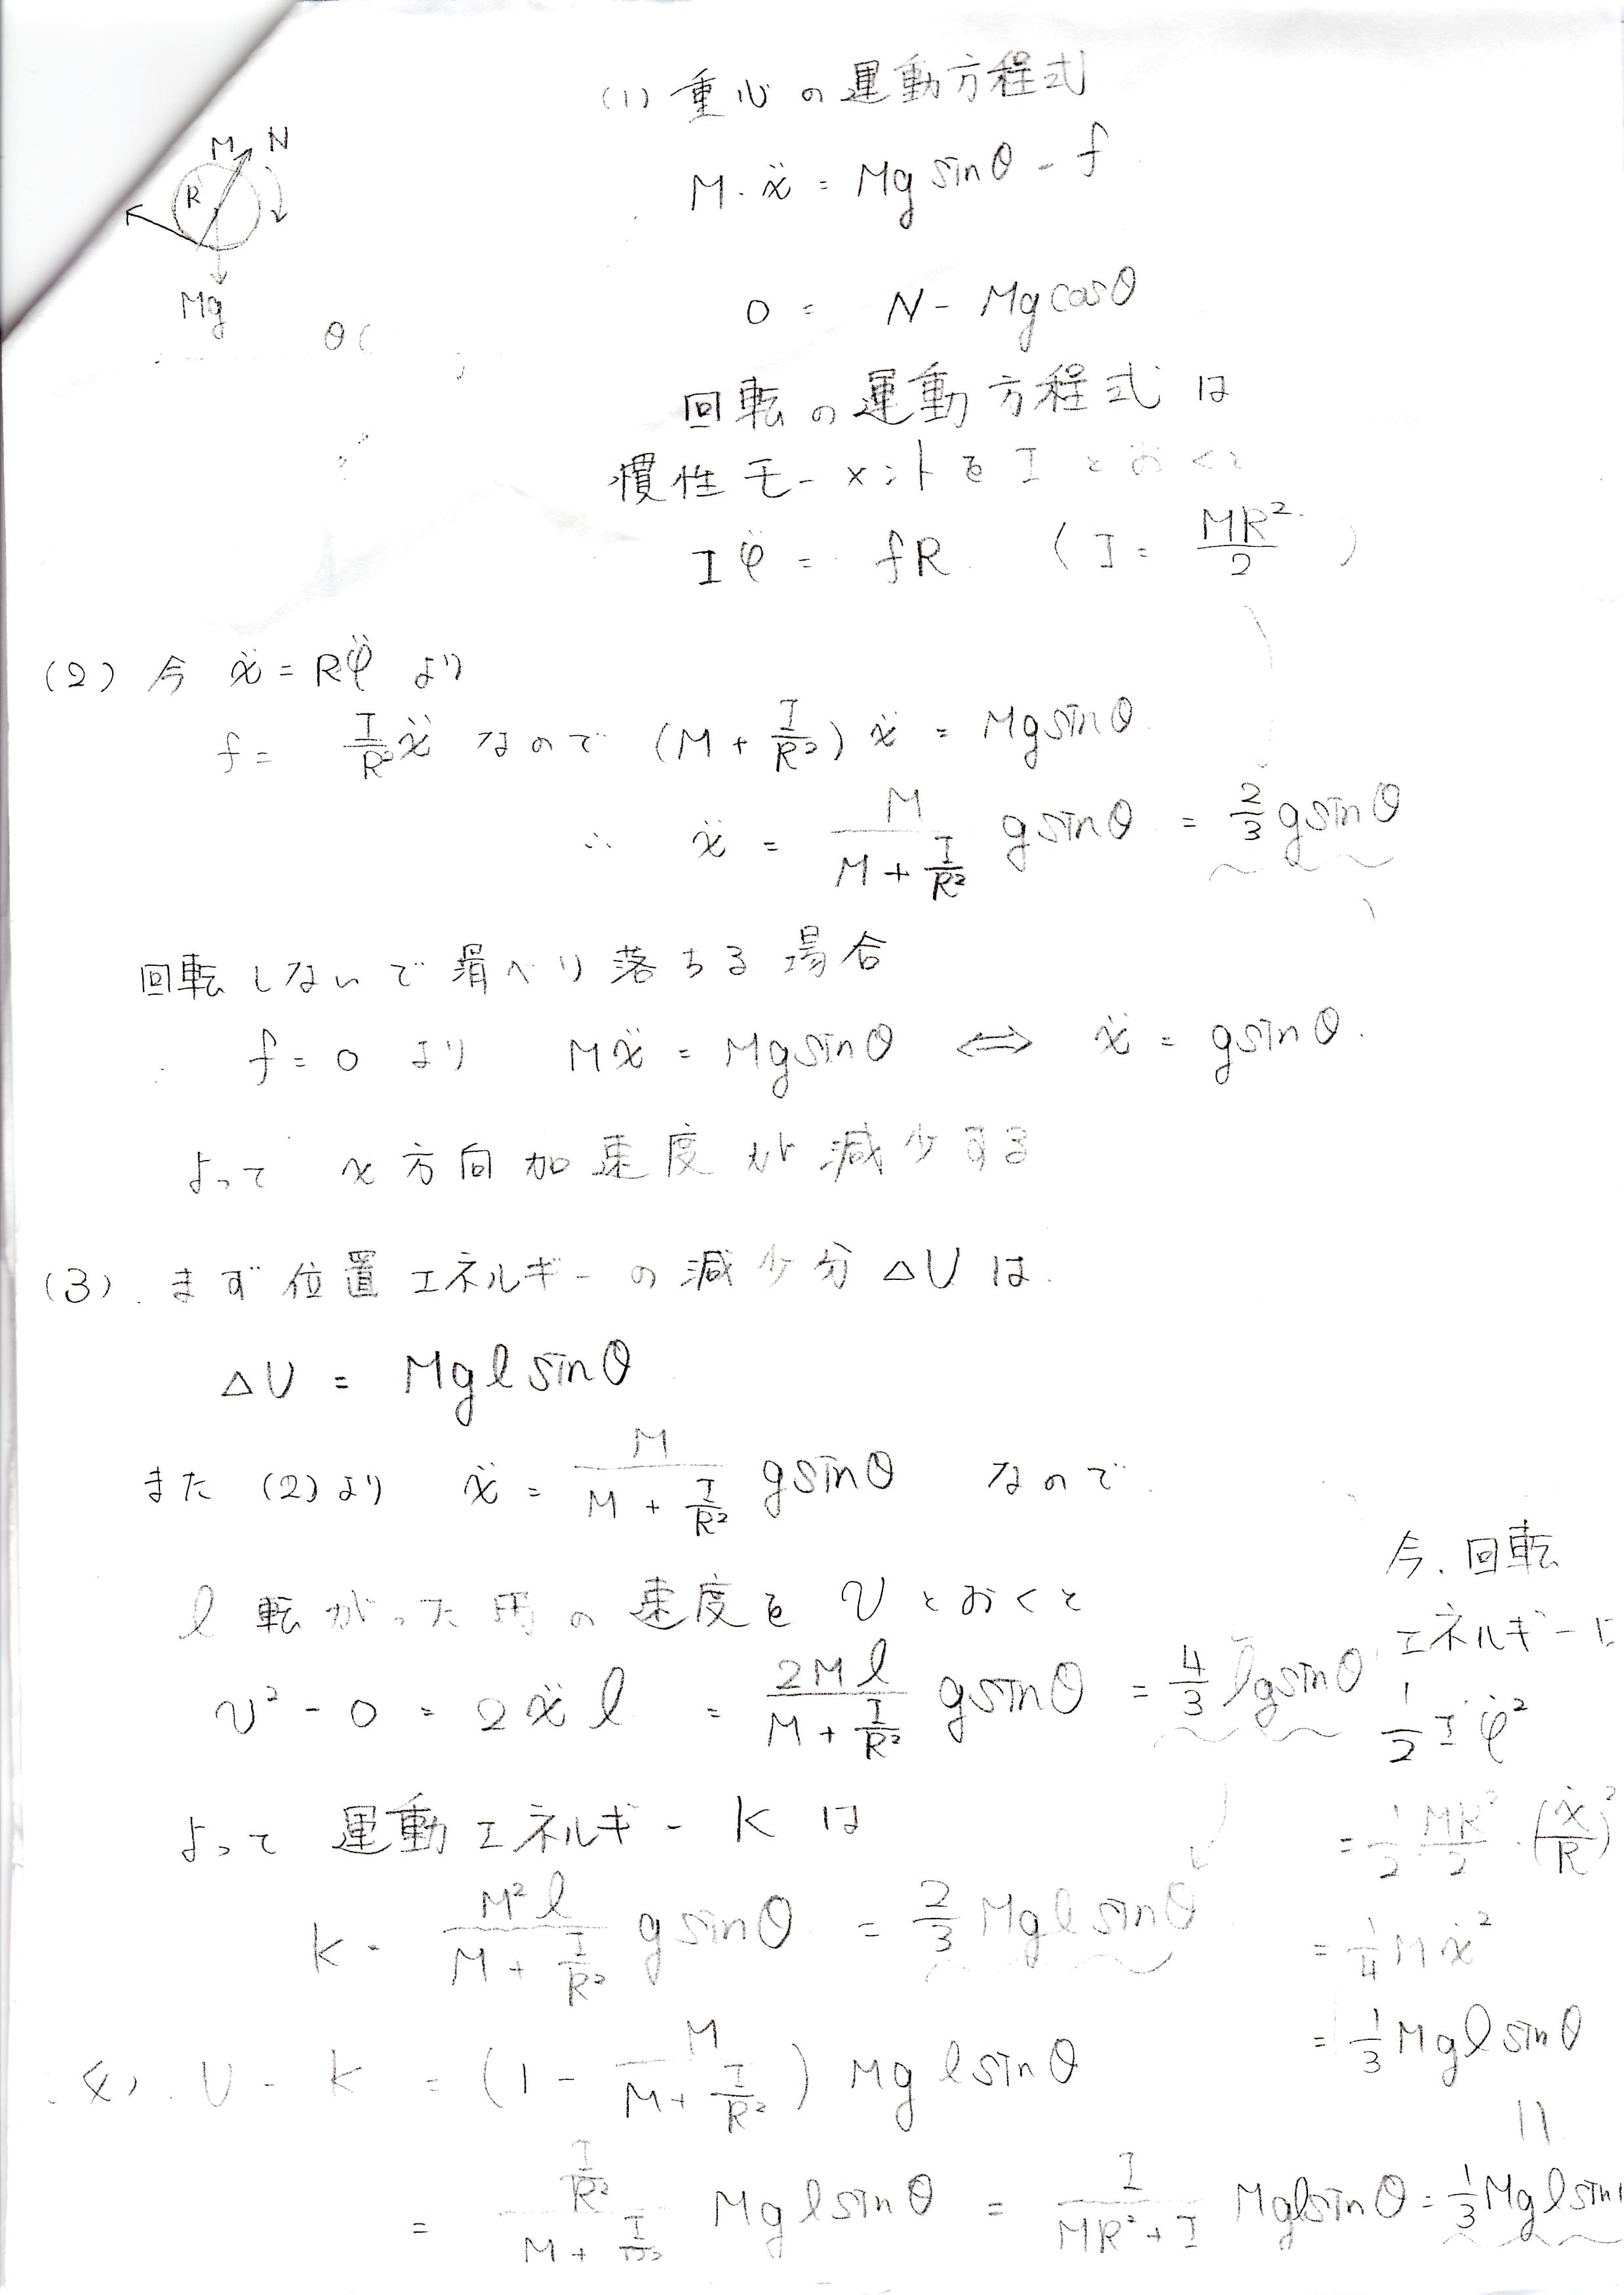 M N
R
Mg
θ
(1) 重心の運動方程式
M・ẍ = Mg sinθ - f
0 = N - Mg cosθ
回転の運動方程式は
慣性モーメントを I とおくと
Iφ̈ = fR (I = MR²/2)
(2) 今 ẍ = Rφ̈ より
f = I/R² ẍ なので (M + I/R²) ẍ = Mg sinθ
∴ ẍ = M/(M + I/R²) g sinθ = 2/3 g sinθ
回転しないで滑べり落ちる場合
f = 0 より Mẍ = Mg sinθ ⇔ ẍ = g sinθ.
よって x方向加速度が減少する
(3). まず位置エネルギーの減少分 ΔU は
ΔU = Mg l sinθ
また (2)より ẍ = M/(M + I/R²) g sinθ なので
l 転がった時の速度を v とおくと
v² - 0 = 2ẍl = 2Ml/(M + I/R²) g sinθ = 4/3 l g sinθ
よって 運動エネルギー K は
K = M²l/(M + I/R²) g sinθ = 2/3 Mg l sinθ
今. 回転
エネルギーは
1/2 Iφ̇²
= 1/2 MR²/2・(ẋ/R)²
= 1/4 Mẋ²
= 1/3 Mg l sinθ
U - K = (1 - M/(M + I/R²)) Mg l sinθ
= (I/R²)/(M + I/R²) Mg l sinθ = I/(MR² + I) Mg l sinθ = 1/3 Mg l sin